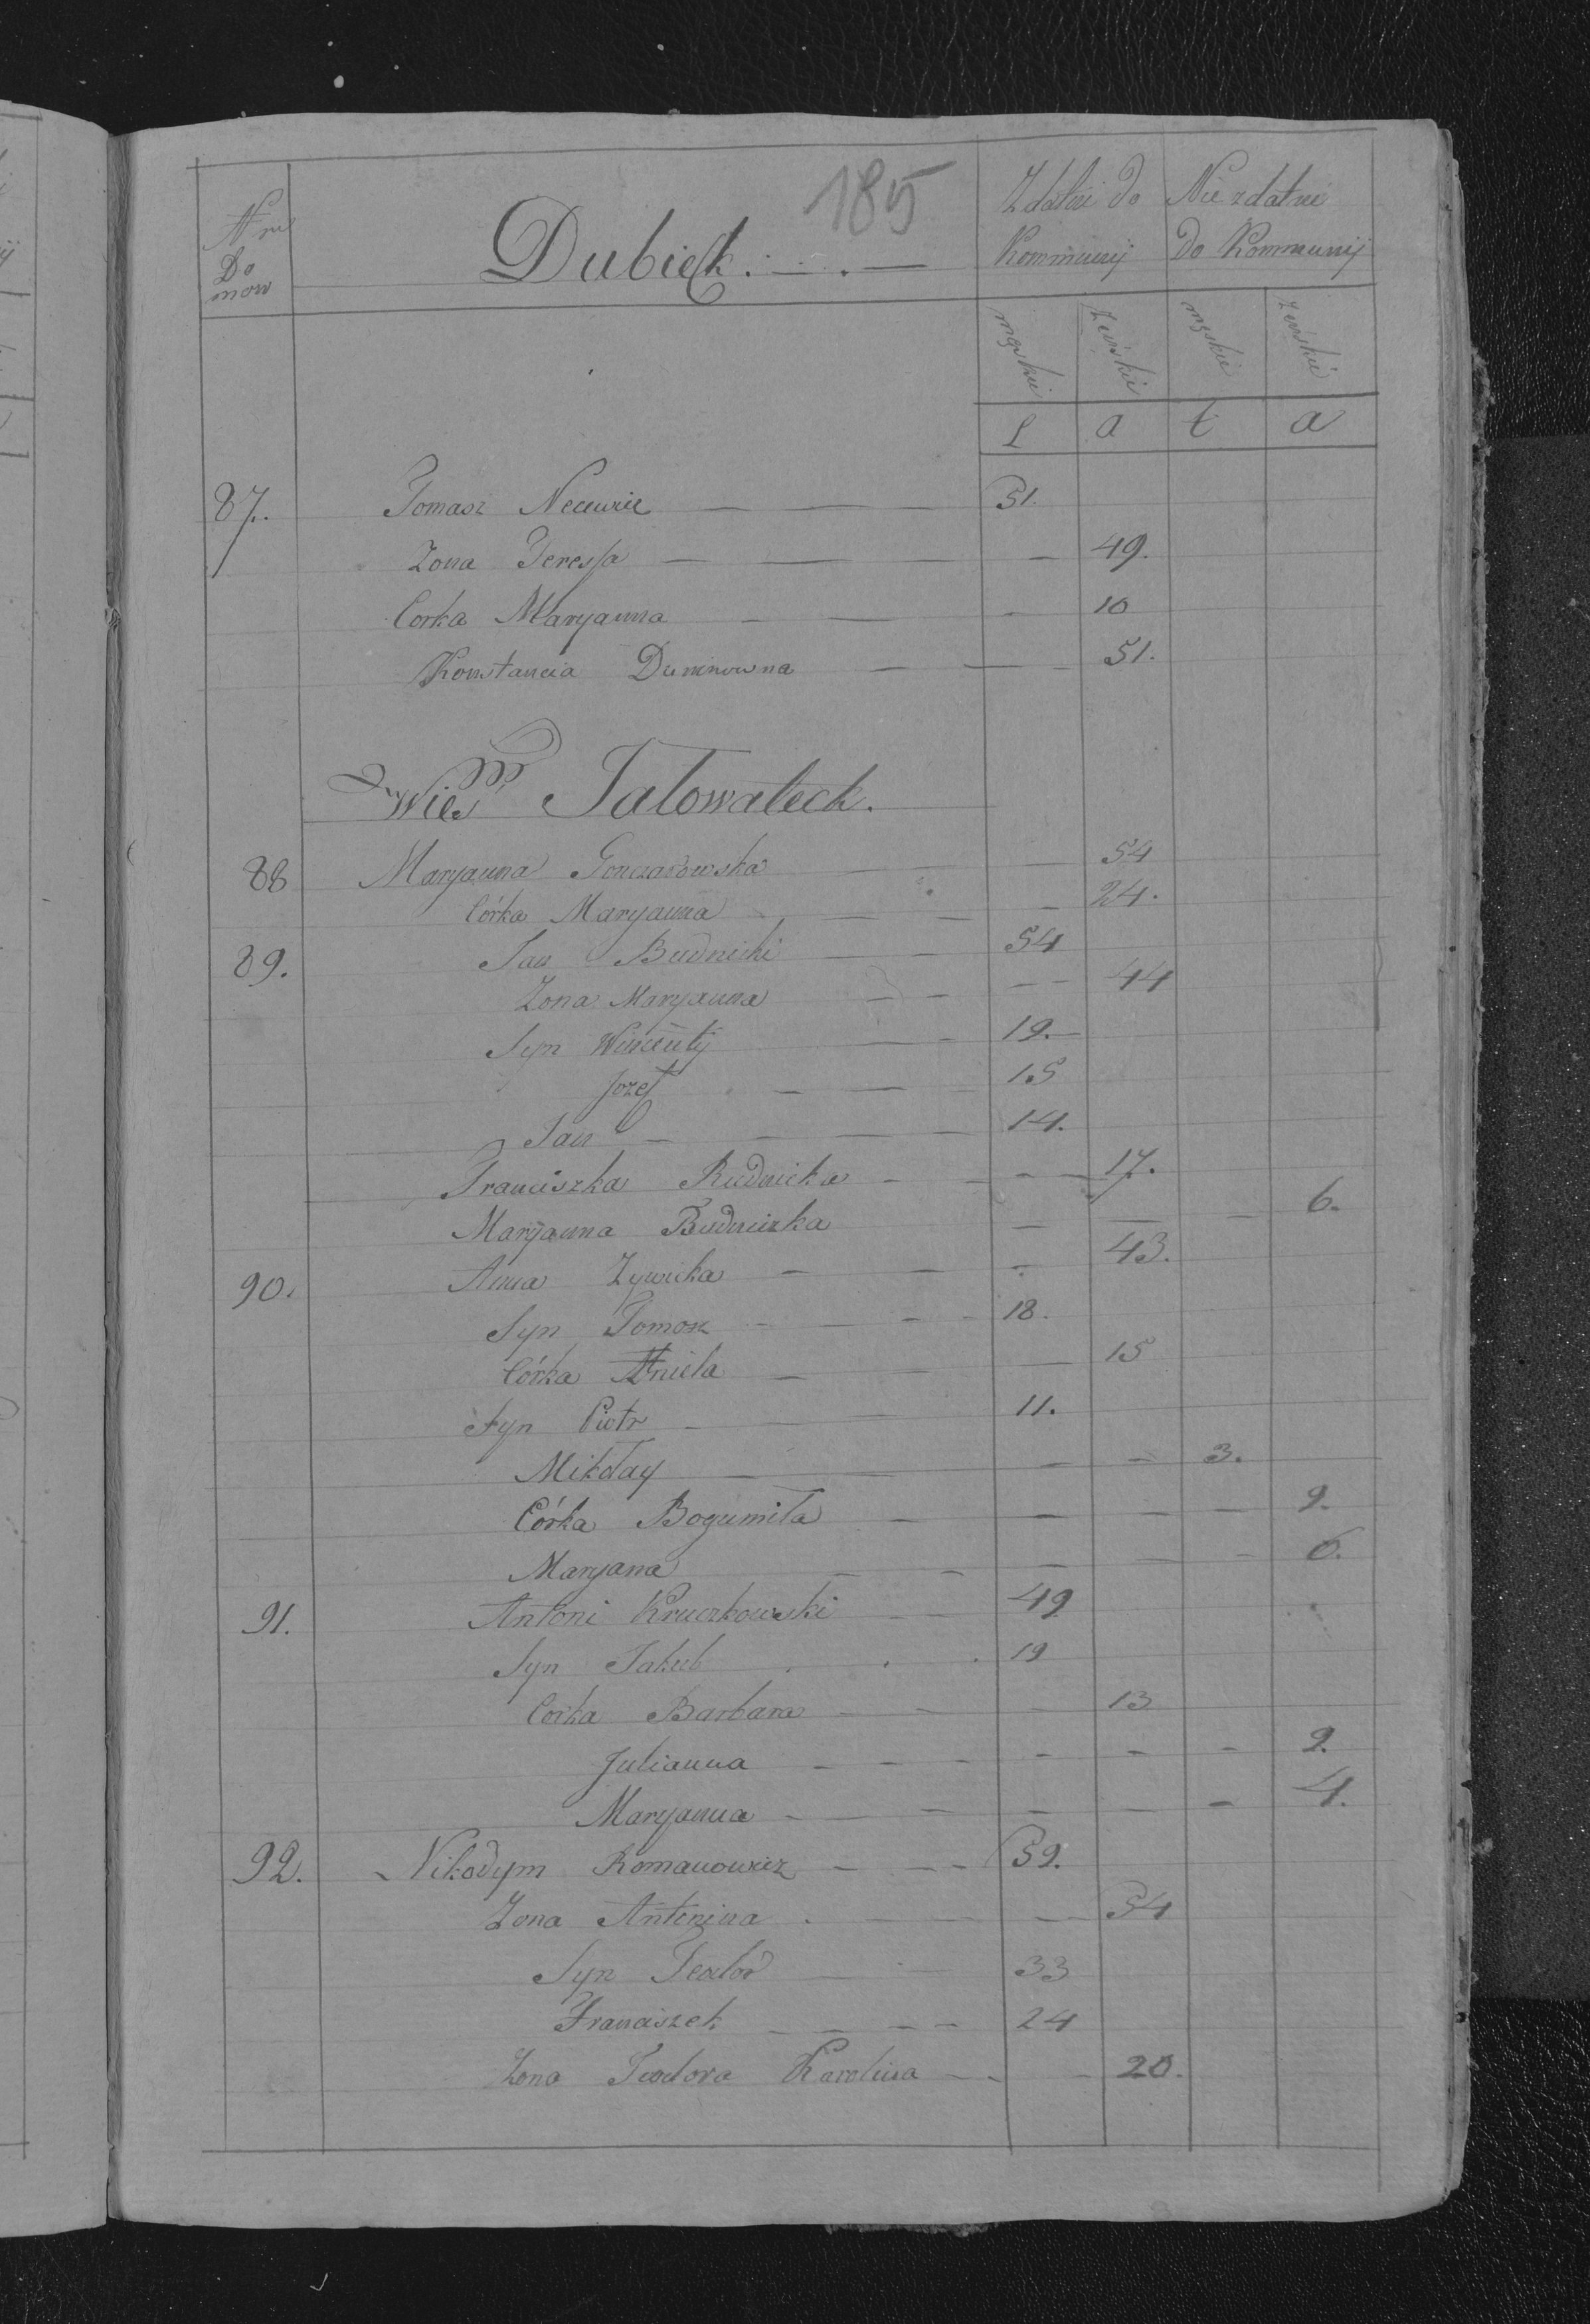 185
Nro Do mow
Dubick.
Zdatni do Kommunij
Nie zdatni do Kommunij
męskie żeńskie męskie żeńskie
L a t a
87. Tomasz 51.
ZonaTeressa — 49.
Corka Maryanna — 10
Konstancia — 51.
Wieś Jałowateck.
88 Maryanna Gonczarowska — 54
Córka Maryanna — 24.
89. Jan Budnicki — 54
Zona Maryanna — 44
Syn Wincenty — 19.
Jozef — 15
Jan — 14.
Franciszka Rudnicka — 17.
Maryanna Budnicka — 6.
90. Anna Zywicka — 43.
Syn Tomasz — 18.
Córka Aniela — 15
Syn Piotr — 11.
Mikołay — 3.
Córka Bogumiła — 9.
Maryana — 6.
91. Antoni Kruczkowski — 49
Syn Jakub 19
Corka Barbara — 13
Julianna — 9.
Maryanna — 4.
92. Nikodym Romanowicz — 59.
Zona Antonina — 54
Syn Teodor — 33
Franciszek — 24
Zona Teodora Karolina — 20.